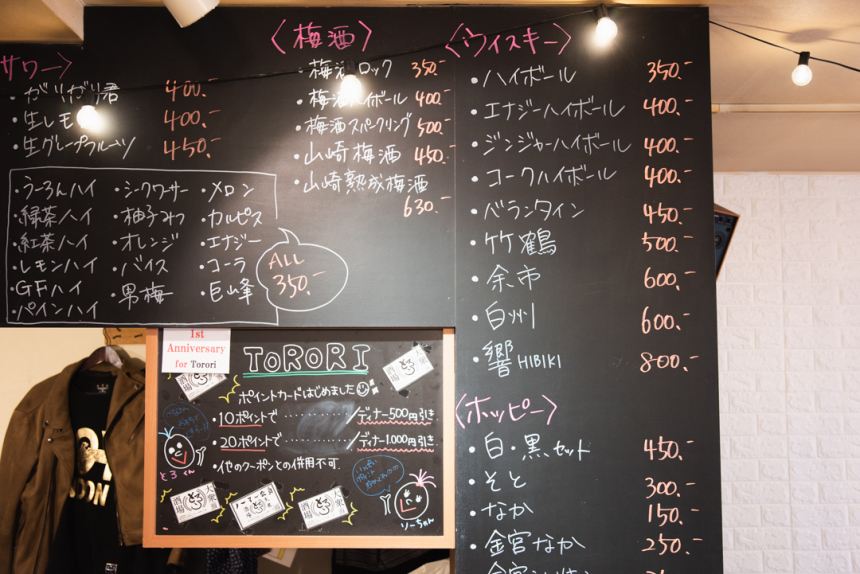 サワー〉
・ガリガリ君 400.-
・生レモン 400.-
・生グレープフルーツ 450.-
・うーろんハイ ・シークワーサー ・メロン
・緑茶ハイ ・柚子みつ ・カルピス
・紅茶ハイ ・オレンジ ・エナジー
・レモンハイ ・バイス ・コーラ
・GFハイ ・男梅 ・巨峰
・パインハイ
ALL
350.-
〈梅酒〉
・梅酒ロック 350.-
・梅酒ハイボール 400.-
・梅酒スパークリング 500.-
・山崎梅酒 450.-
・山崎熟成梅酒
630.-
〈ウィスキー〉
・ハイボール 350.-
・エナジーハイボール 400.-
・ジンジャーハイボール 400.-
・コークハイボール 400.-
・バランタイン 450.-
・竹鶴 500.-
・余市 600.-
・白州 600.-
・響 HIBIKI 800.-
〈ホッピー〉
・白・黒セット 450.-
・そと 300.-
・なか 150.-
・金宮なか 250.-
1st
Anniversary
for Torori
TORORI
ポイントカードはじめました
・10ポイントで ・・・・・・・・・・ /ディナー500円引き
・20ポイントで ・・・・・・・・・・ /ディナー1.000円引き
・他のクーポンとの併用不可.
とろくん
りーちゃん
大衆
酒場